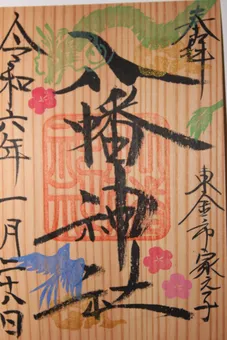 奉拝
東金市家之子
八幡神社
令和六年一月二十八日